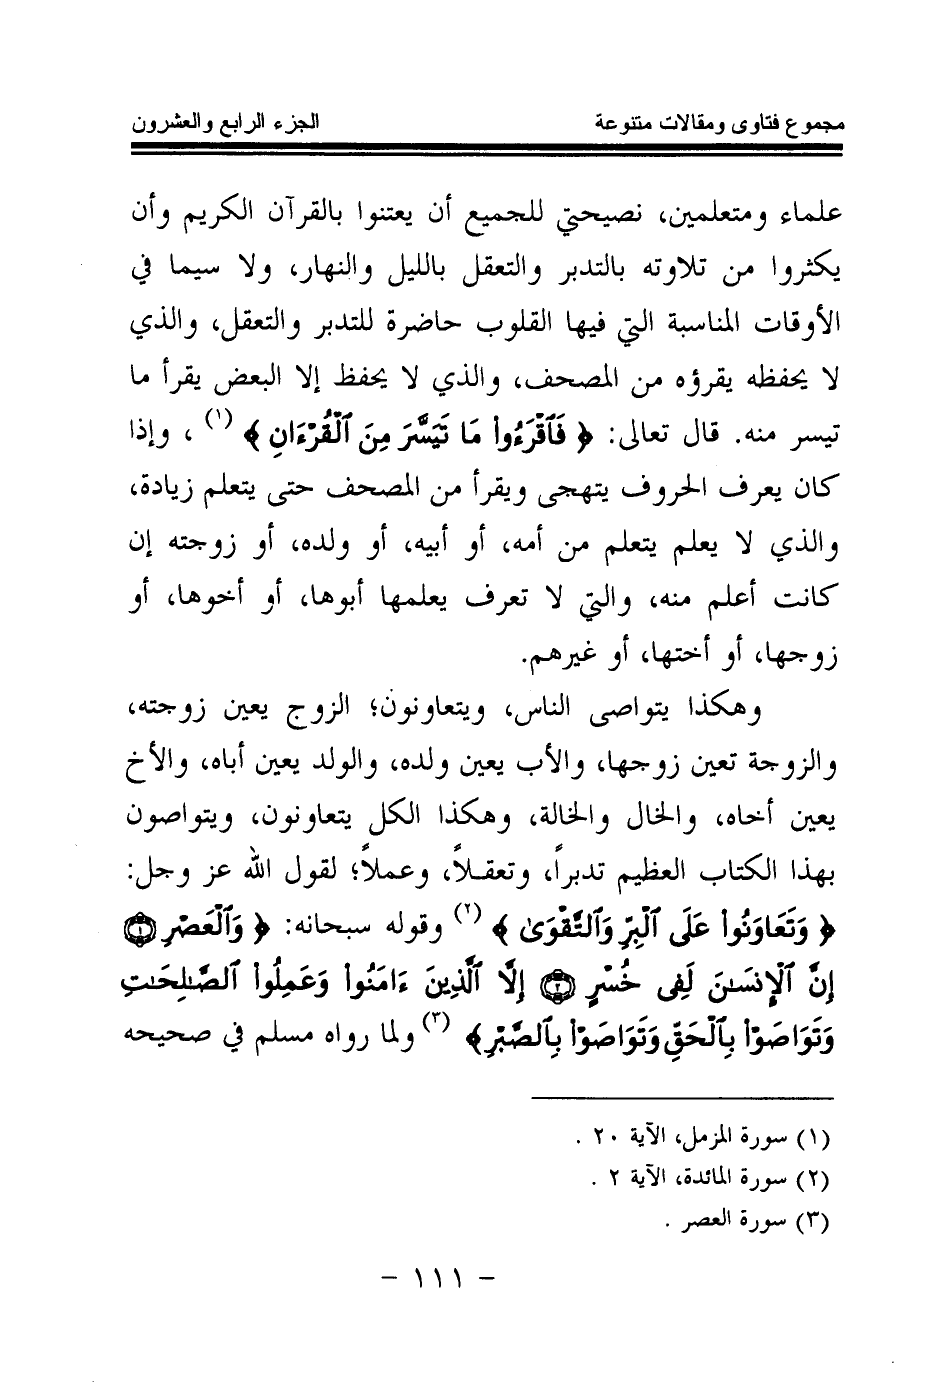 مجموع فتاوى ومقالات متنوعة الجزء الرابع والعشرون
علماء ومتعلمين، نصيحتي للجميع أن يعتنوا بالقرآن الكريم وأن
يكثروا من تلاوته بالتدبر والتعقل بالليل والنهار، ولا سيما في
الأوقات المناسبة التي فيها القلوب حاضرة للتدبر والتعقل، والذي
لا يحفظه يقرؤه من المصحف، والذي لا يحفظ إلا البعض يقرأ ما
تيسر منه. قال تعالى: ﴿ فَٱقْرَءُوا۟ مَا تَيَسَّرَ مِنَ ٱلْقُرْءَانِ ﴾ (١) ، وإذا
كان يعرف الحروف يتهجى ويقرأ من المصحف حتى يتعلم زيادة،
والذي لا يعلم يتعلم من أمه، أو أبيه، أو ولده، أو زوجته إن
كانت أعلم منه، والتي لا تعرف يعلمها أبوها، أو أخوها، أو
زوجها، أو أختها، أو غيرهم.
وهكذا يتواصى الناس، ويتعاونون؛ الزوج يعين زوجته،
والزوجة تعين زوجها، والأب يعين ولده، والولد يعين أباه، والأخ
يعين أخاه، والخال والخالة، وهكذا الكل يتعاونون، ويتواصون
بهذا الكتاب العظيم تدبراً، وتعقلاً، وعملاً؛ لقول الله عز وجل:
﴿ وَتَعَاوَنُوا۟ عَلَى ٱلْبِرِّ وَٱلتَّقْوَىٰ ﴾ (٢) وقوله سبحانه: ﴿ وَٱلْعَصْرِ ۝١
إِنَّ ٱلْإِنسَٰنَ لَفِى خُسْرٍ ۝٢ إِلَّا ٱلَّذِينَ ءَامَنُوا۟ وَعَمِلُوا۟ ٱلصَّٰلِحَٰتِ
وَتَوَاصَوْا۟ بِٱلْحَقِّ وَتَوَاصَوْا۟ بِٱلصَّبْرِ﴾ (٣) ولما رواه مسلم في صحيحه
(١) سورة المزمل، الآية ٢٠ .
(٢) سورة المائدة، الآية ٢ .
(٣) سورة العصر .
- ١١١ -